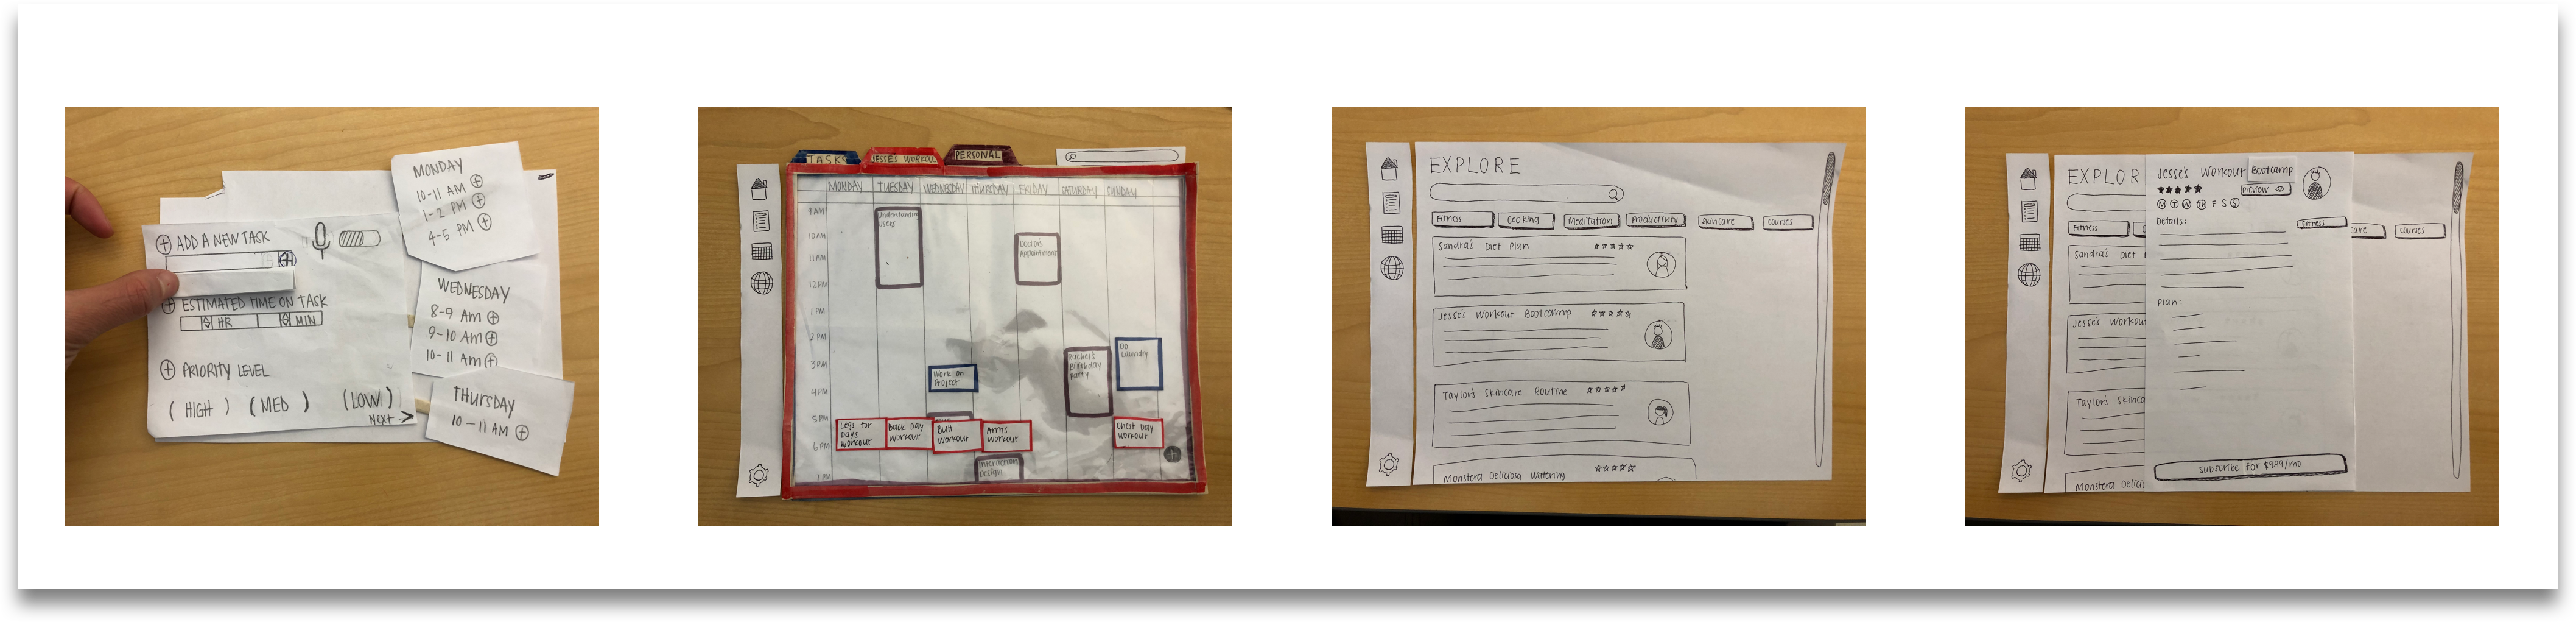 ADD A NEW TASK
ESTIMATED TIME ON TASK
HR MIN
PRIORITY LEVEL
(HIGH) (MED) (LOW)
NEXT >
MONDAY
10-11 AM
1-2 PM
4-5 PM
WEDNESDAY
8-9 AM
9-10 AM
10-11 AM
THURSDAY
10-11 AM
TASKS JESSE'S WORKOUT PERSONAL
MONDAY TUESDAY WEDNESDAY THURSDAY FRIDAY SATURDAY SUNDAY
9AM
10AM
11AM
12PM
1PM
2PM
3PM
4PM
5PM
6PM
7PM
Understanding
Users
Doctor's
Appointment
Work on
Project
Rachel's
Birthday
Party
Do
Laundry
Legs for
Days
Workout
Back Day
Workout
Butt
Workout
Arms
Workout
Chest Day
Workout
Interaction
Design
EXPLORE
Fitness Cooking Meditation Productivity Skincare Courses
Sandra's Diet Plan
Jesse's Workout Bootcamp
Taylor's Skincare Routine
Monstera Deliciosa Watering
EXPLOR
Fitness C care Courses
Sandra's Diet
Jesse's Workout
Taylor's Skinca
Monstera Delici
Jesse's Workout Bootcamp
Preview
M T W Th F S S
Details:
Fitness
Plan:
Subscribe for $9.99/mo